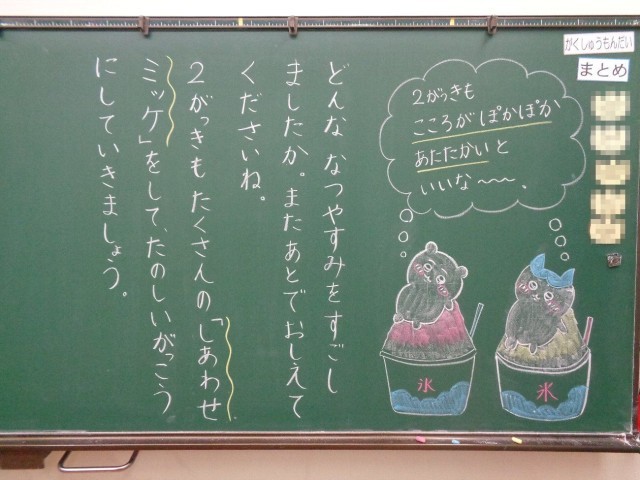 がくしゅうもんだい
まとめ
2がっきも
こころがぽかぽか
あたたかいと
いいな〜〜、
どんな なつやすみをすごし
ましたか。またあとでおしえて
くださいね。
2がっきもたくさんの「しあわせ
ミッケ」をして、たのしいがっこう
にしていきましょう。
氷
氷